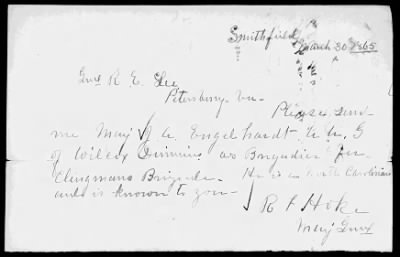 Smithfield
March 30 1865
Genl R. E. Lee
Petersburg. Va-
Please send
me Maj J. A. Engelhardt A. A. G
of Wilcox Division as Brigadier for
Clingmans Brigade. He is a North Carolinian
and is known to you-
R F Hoke
Maj Genl